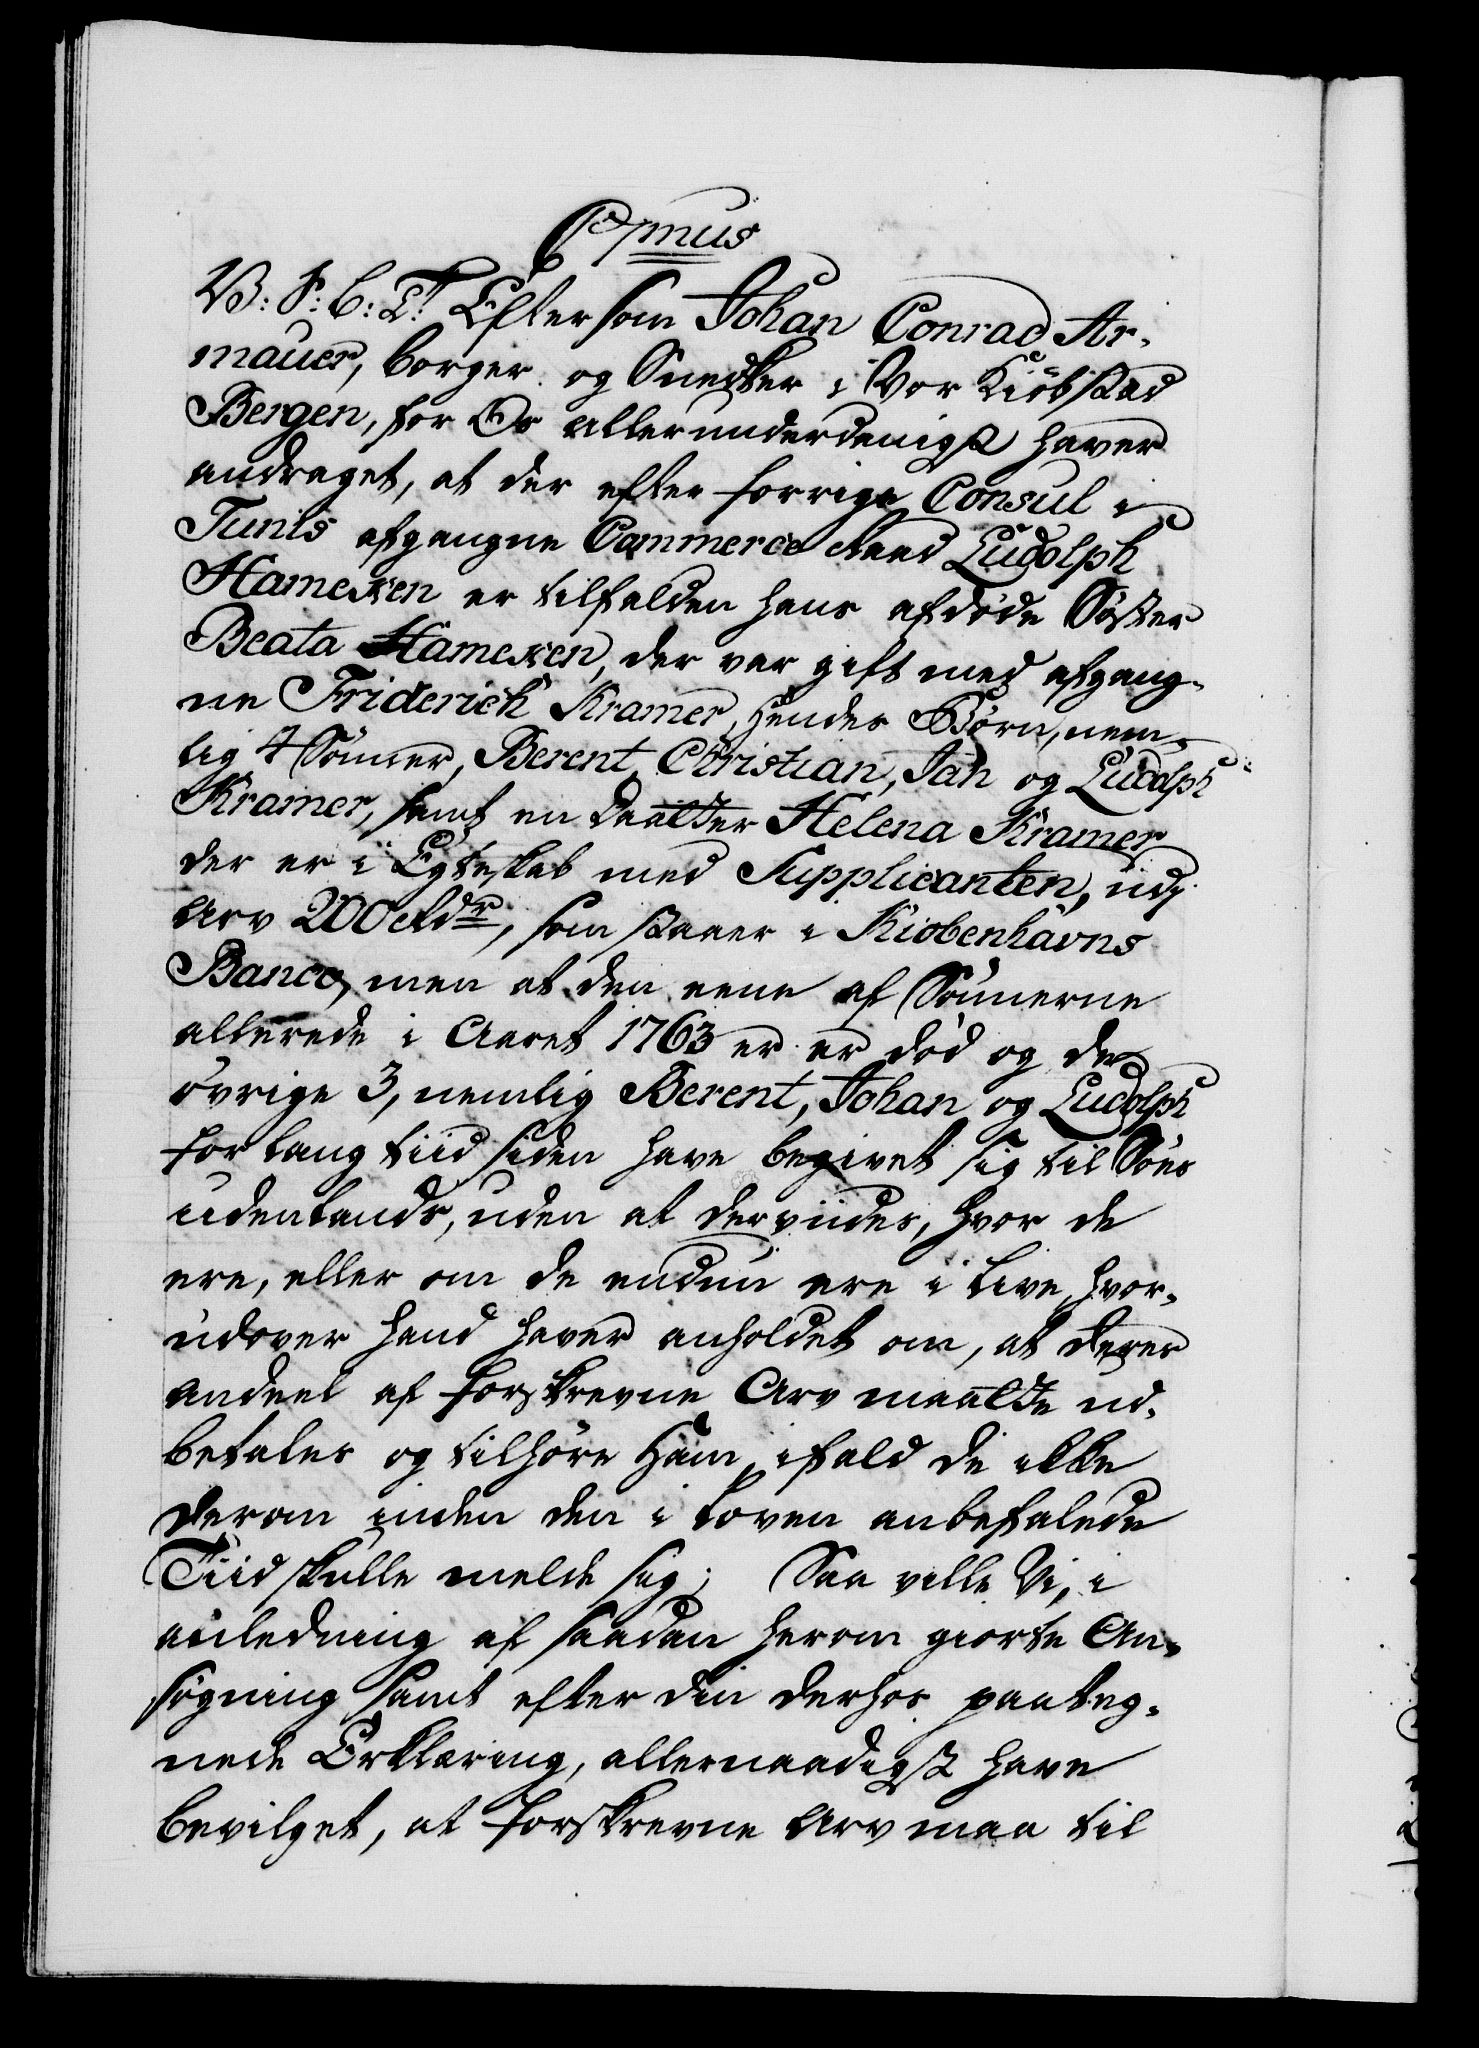 C7mus
V: S: B: T! Eftersom Johan Conrad Ar-
mauer, borger og Snedker i Vor Kiöbstad
Bergen, for Os allerunderdanigst haver
andraget, at der efter forrige Consul i
Tunis afgangne Commerce Raad Ludolph
Hameken er tilfalden hans afdøde Söster
Beata Hameken, der var gift med afgang-
ne Friderich Kramer, Hendes Börn, nem-
lig 4 Sönner, Berent, Christian, Jan og Ludolph
Kramer, samt en daatter Helena Kramer
der er i Egteskab med Supplicanten, udj
Arv 200 Rdr, som staaer i Kiøbenhavns
Banco, men at den eene af Sönnerne
allerede i Aaret 1763 er er död og de
övrige 3, nemlig Berent, Johan og Ludolph
for lang tiid siden have begivet sig til Söes
udenlands, uden at der viides, hvor de
ere, eller om de endnu ere i Live, hvor-
udover hand haver anholdet om, at deres
andeel af forskrevne Arv maatte ud-
betales og tilhöre Ham, ifald de ikke
derom inden den i Loven anbefalede
Tiid skulle melde sig; Saa ville Vi, i
anledning af saadan herom giorte An-
søgning samt efter din derhos paateg-
nede Erklæring, allernaadigst have
bevilget, at forskrevne Arv maa til